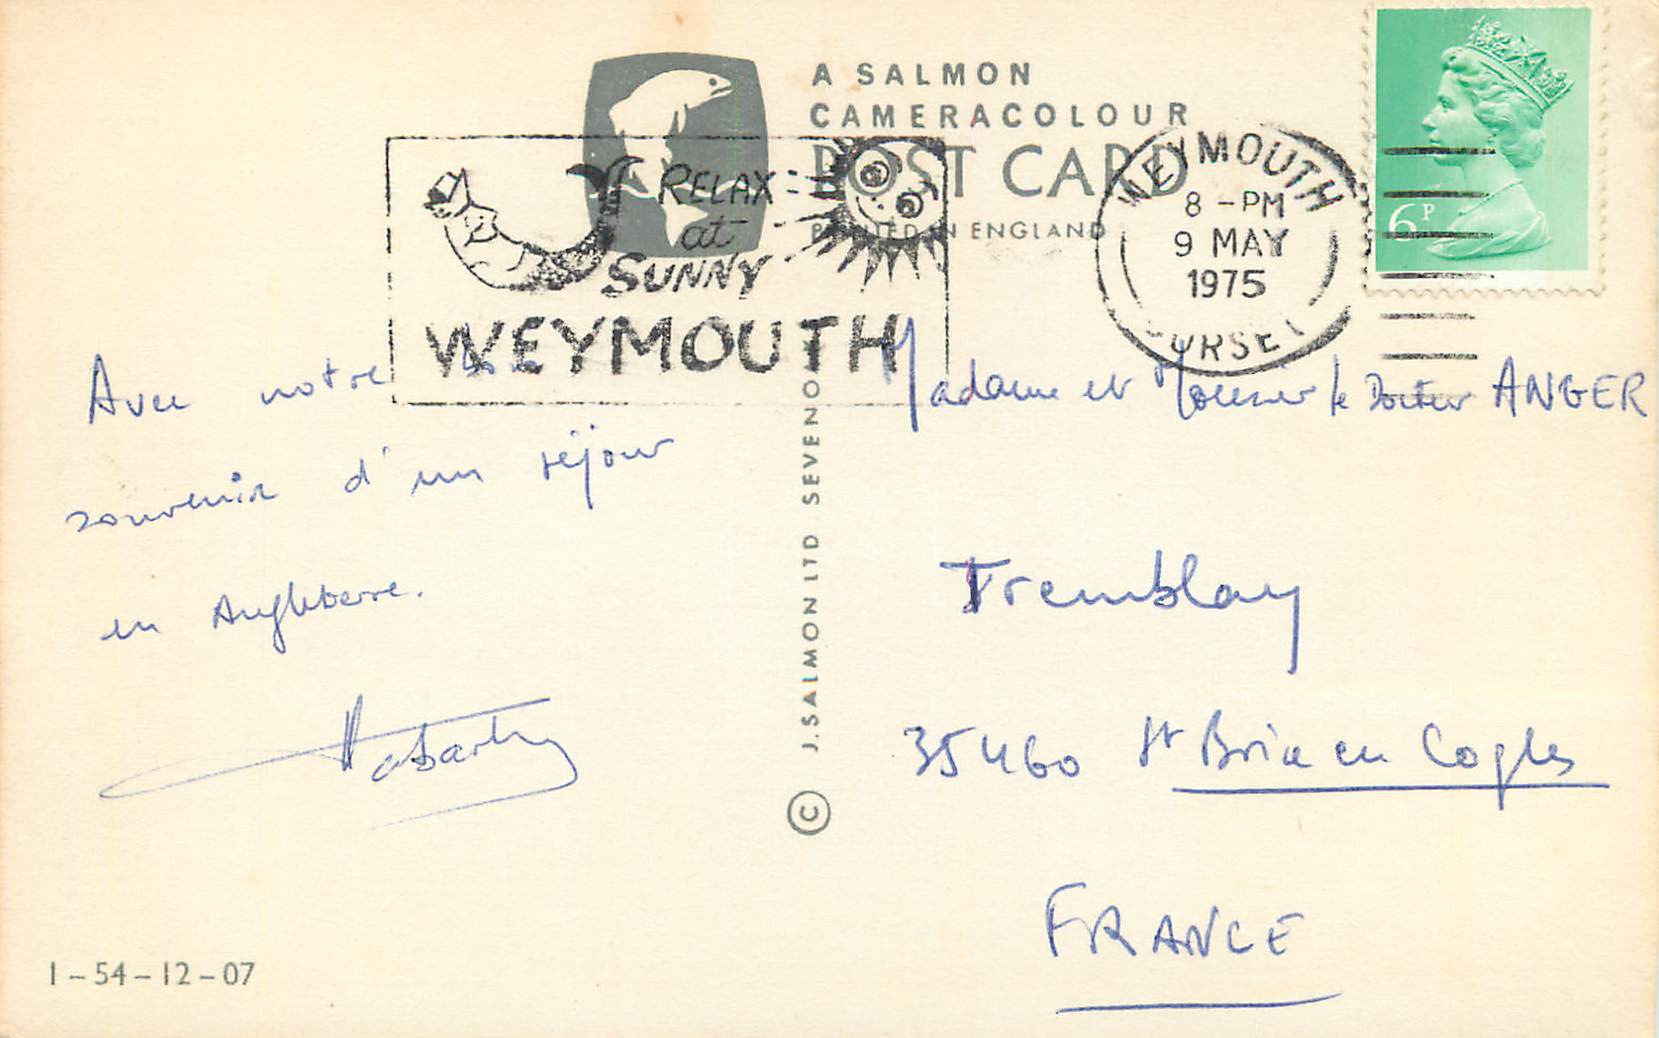 A SALMON
CAMERACOLOUR
POST CARD
PRINTED IN ENGLAND
RELAX
at
SUNNY
WEYMOUTH
WEYMOUTH
8 - PM
9 MAY
1975
DORSET
6P
Avec notre bon
souvenir d'un séjour
en Angleterre.
J. SALMON LTD SEVENO
©
Madame et Monsieur le Docteur ANGER
Tremblay
35460 St Brice en Cogles
FRANCE
1-54-12-07